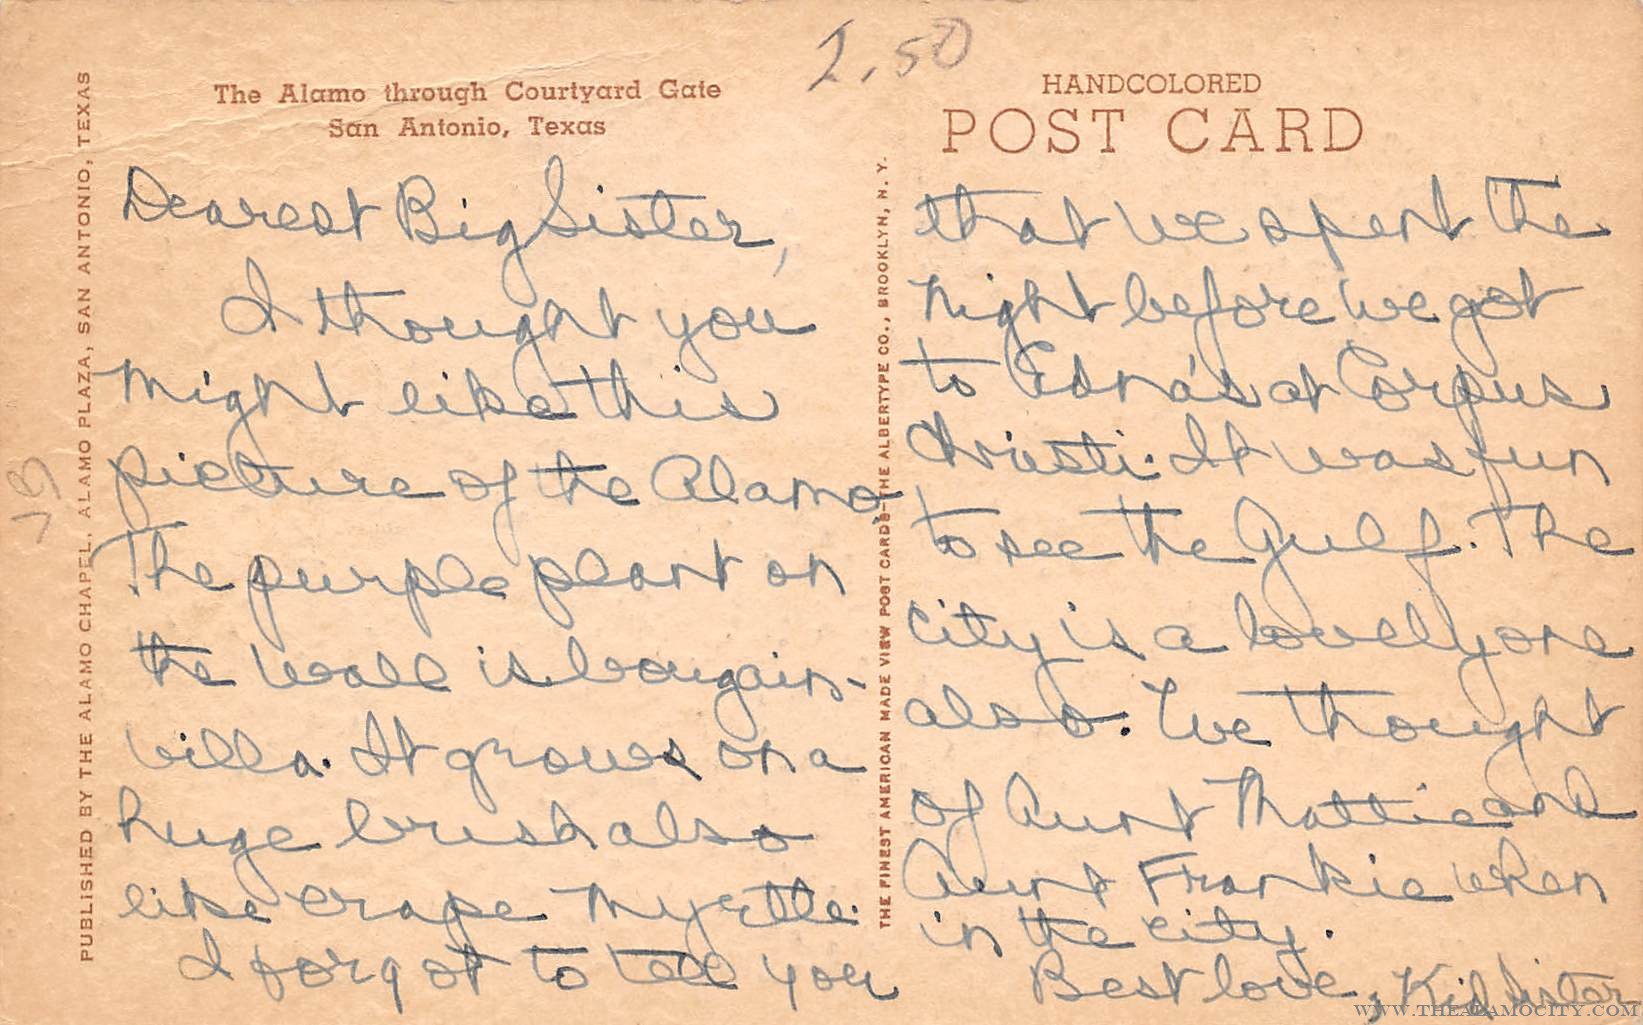 2.50
The Alamo through Courtyard Gate
San Antonio, Texas
HANDCOLORED
POST CARD
PUBLISHED BY THE ALAMO CHAPEL, ALAMO PLAZA, SAN ANTONIO, TEXAS
Dearest Big Sister,
I thought you
might like this
picture of the Alamo.
The purple plant on
the wall is bougain-
villa. It grows on a
huge brush also
like crape myrtle.
I forgot to tell you
THE FINEST AMERICAN MADE VIEW POST CARDS—THE ALBERTYPE CO., BROOKLYN, N. Y.
that we spent the
night before we got
to Edna's at Corpus
Christi. It was fun
to see the Gulf. The
city is a lovely one
also. We thought
of Aunt Mattie and
Aunt Frankie when
in the city.
Best love, Kid Sister
WWW.THEALAMOCITY.COM